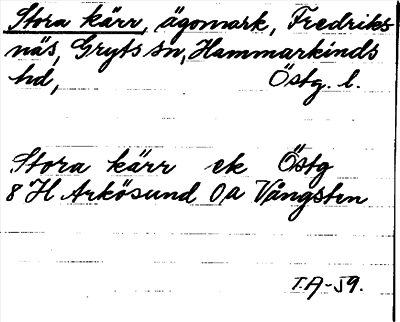 Stora kärr, ägomark, Fredriks-
näs, Gryts sn, Hammarkinds
hd, Östg. l.
Stora kärr ek Östg
8 H Arkösund 0a Vångsten
I.A-59.